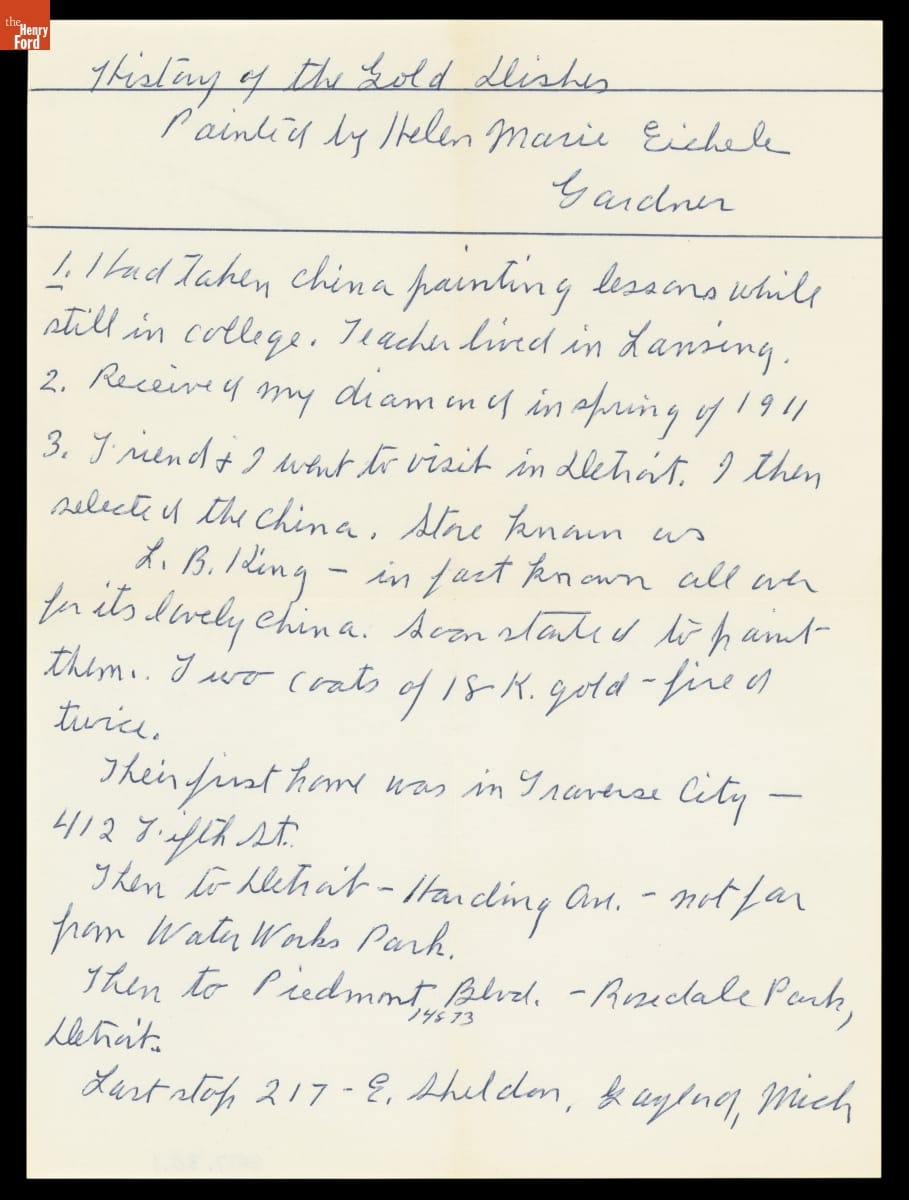 the
Henry
Ford
History of the Gold Dishes
Painted by Helen Marie Eichele
Gardner
1. I had taken china painting lessons while
still in college. Teacher lived in Lansing.
2. Received my diamond in spring of 1911
3. Friend & I went to visit in Detroit. I then
selected the china. Store known as
L. B. King - in fact known all over
for its lovely china. Soon started to paint
them.. Two coats of 18 K. gold - fired
twice.
Their first home was in Traverse City -
412 Fifth St.
Then to Detroit - Harding Ave. - not far
from Water Works Park.
Then to Piedmont Blvd. - Rosedale Park,
Detroit.
Last stop 217 - E. Sheldon, Gaylord, Mich